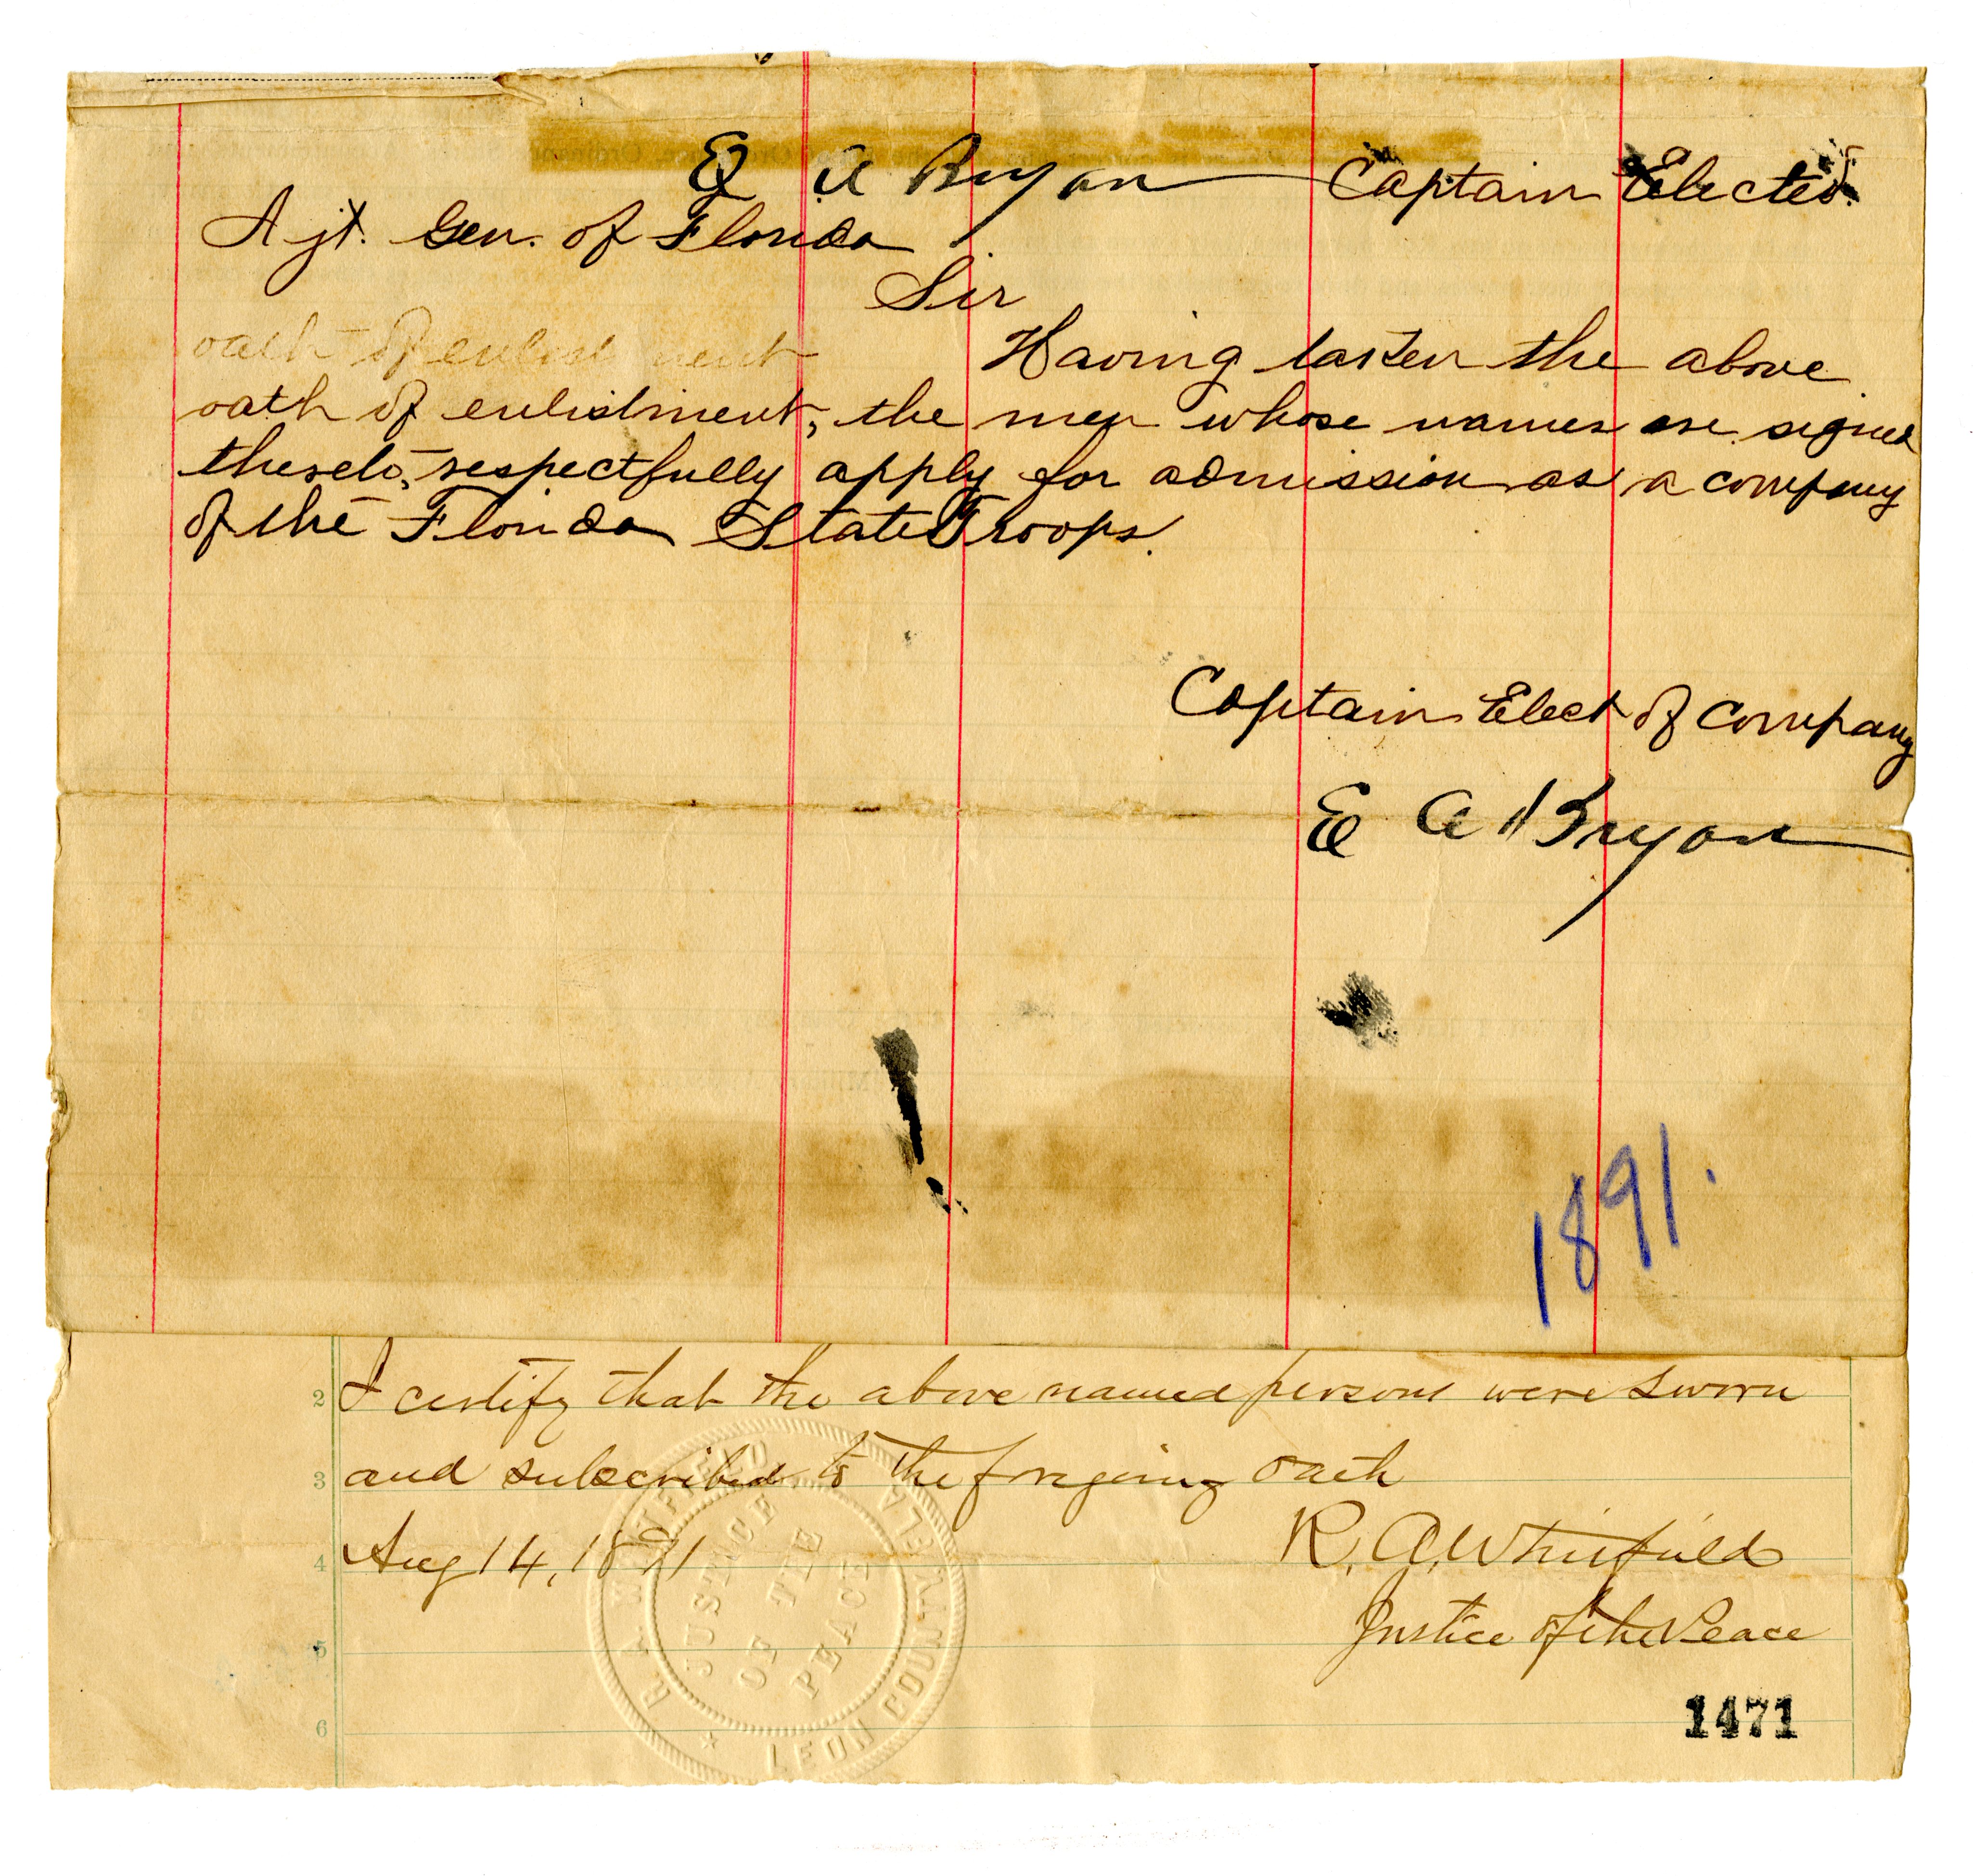 E A Bryan Captain Elected.
Ajt. Gen. of Florida
Sir
oath of enlistment Having taken the above
oath of enlistment, the men whose names are signed
thereto, respectfully apply for admission as a company
of the Florida State Troops.
Captain Elect of Company
E A Bryan
1891.
2 I certify that the above named persons were sworn
3 and subscribed to the foregoing oath
4 Aug 14, 1891 R. A. Whitfield
5 Justice of the Peace
6
R. A. WHITFIELD
JUSTICE
OF THE
PEACE
* LEON COUNTY, FLA
1471